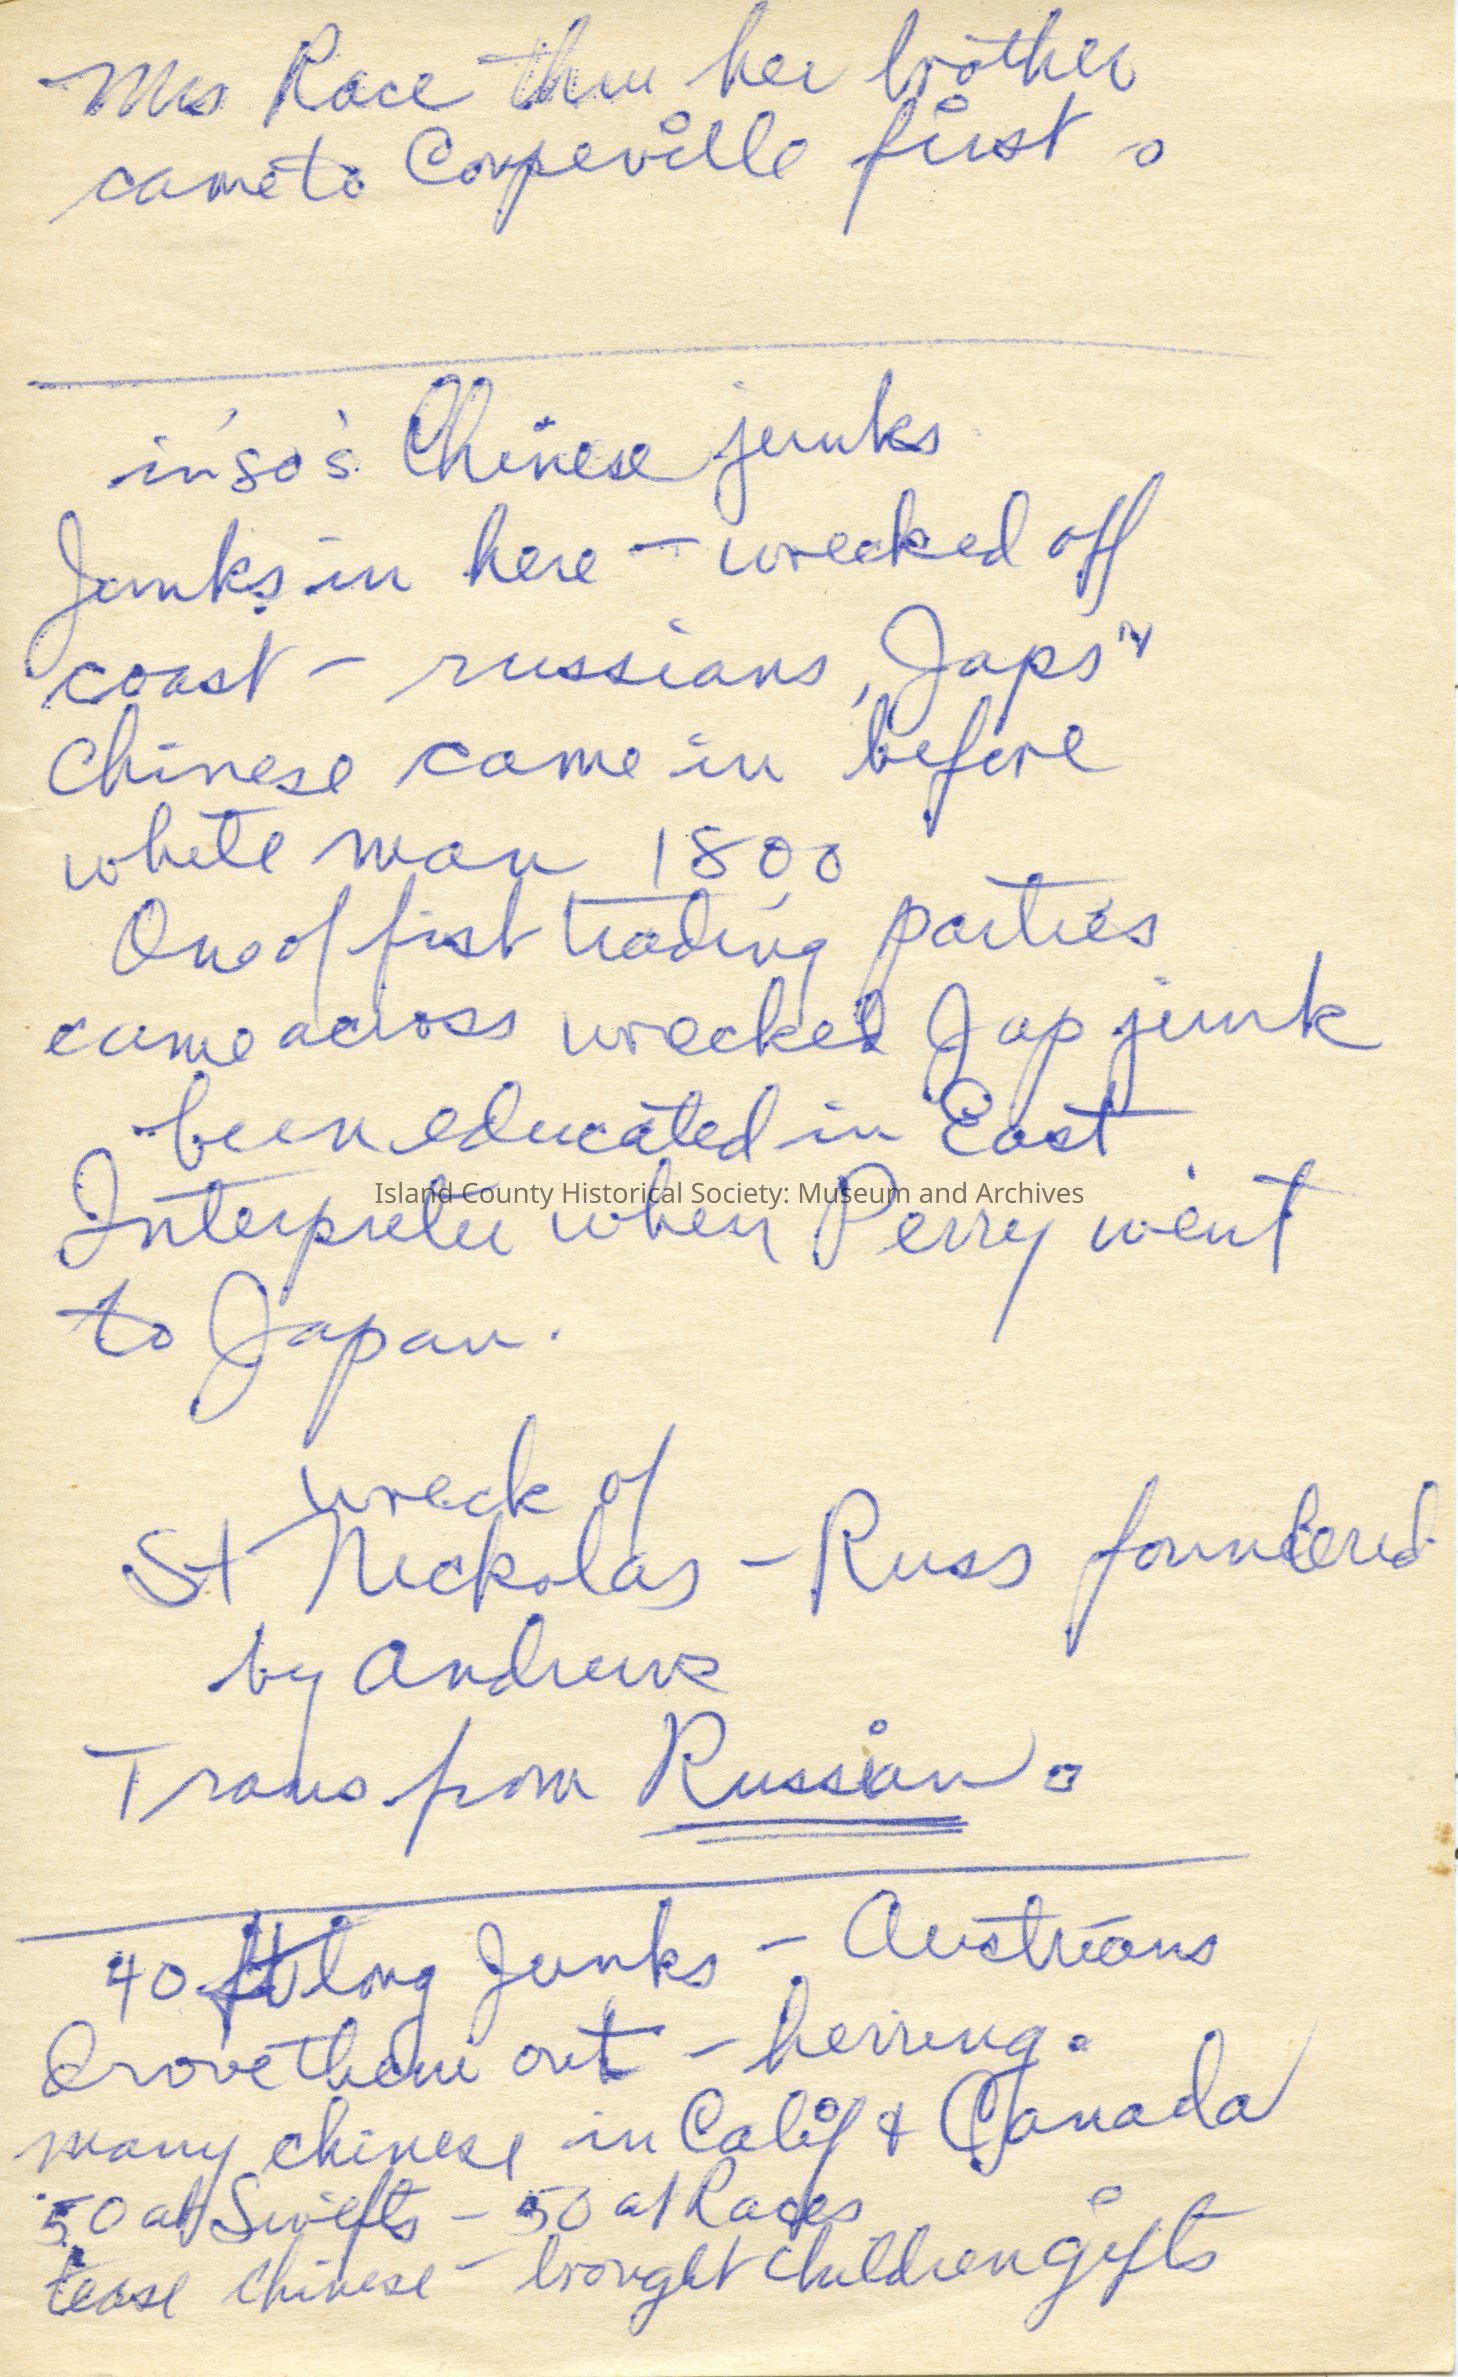 Mrs Race thru her brother
came to Coupeville first.
in '80's Chinese junks
Junks in here - wrecked off
coast - russians, Japs &
Chinese came in before
white man 1800
One of fist trading parties
came across wrecked Jap junk
been educated in East
Island County Historical Society: Museum and Archives
Interpreter when Perry went
to Japan.
wreck of
St Nickolas - Russ foundered
by Andrews
Trans from Russian.
40 ft long Junks - Austrians
drove them out - herring.
many chinese in Calif & Canada
50 at Swifts - 50 at Races
tease chinese - brought children gifts